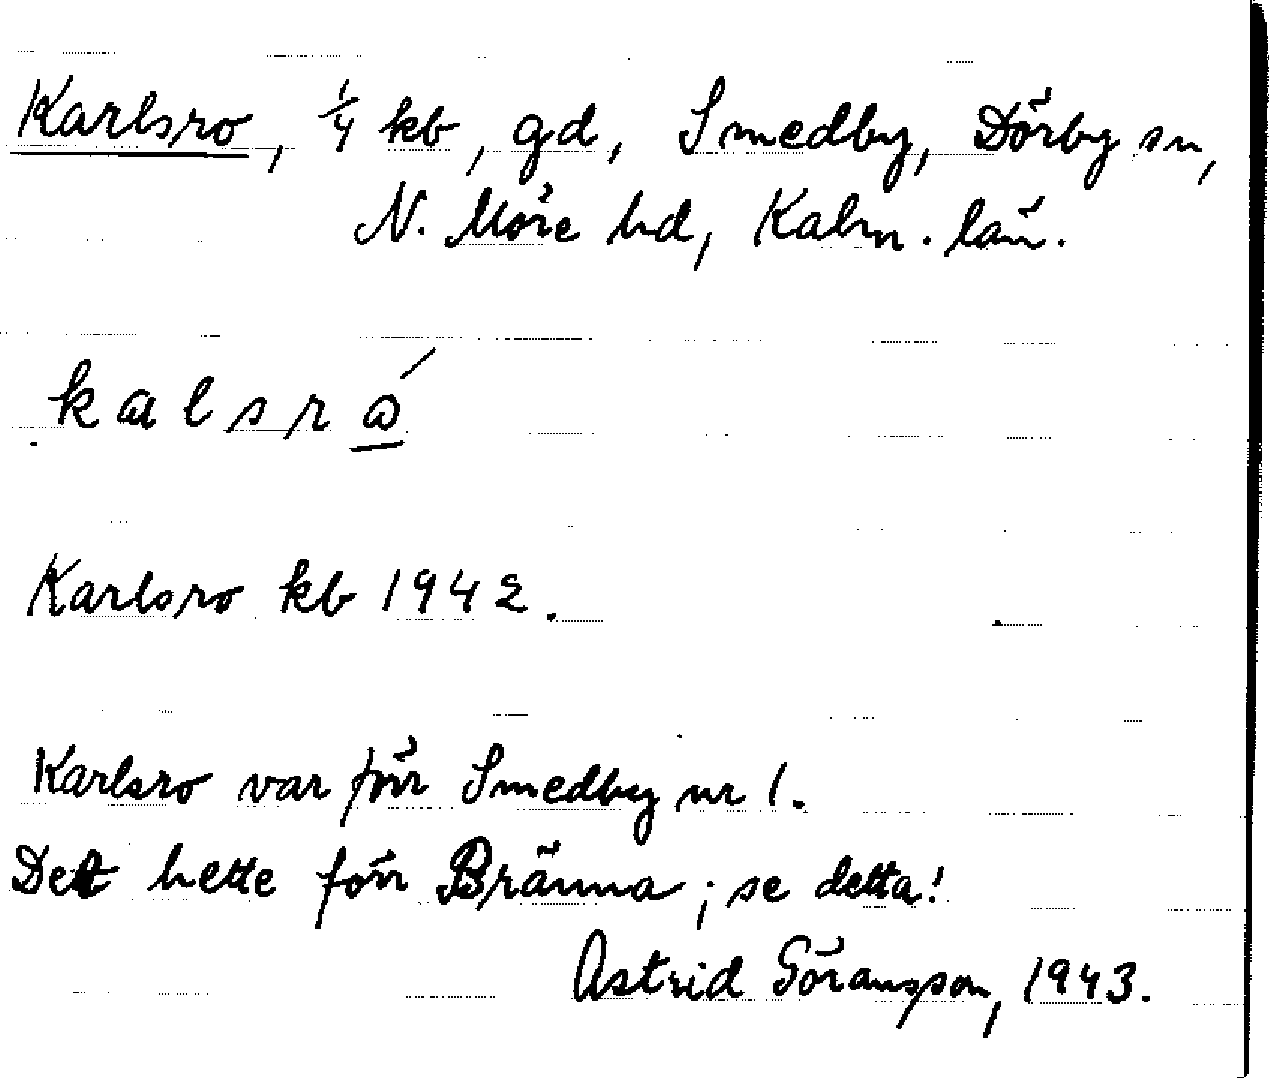 Karlsro, 1/4 kb, gd, Smedby, Dörby sn,
N. Möre hd, Kalm. län.
kalsrώ
Karlsro kb 1942.
Karlsro var förr Smedby nr 1.
Det hette förr Bränna; se detta!
Astrid Göransson, 1943.